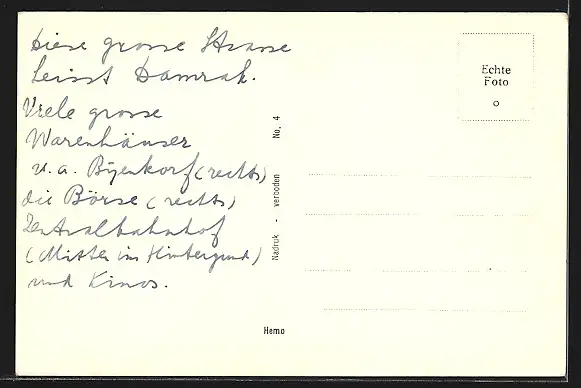 Diese grosse Strasse
heisst Damrak.
Viele grosse
Warenhäuser
u. a. Bijenkorf (rechts)
die Börse (rechts)
Zentralbahnhof
(Mitten im Hintergrund)
und Kinos.
Nadruk - verboden No. 4
Hemo
Echte
Foto